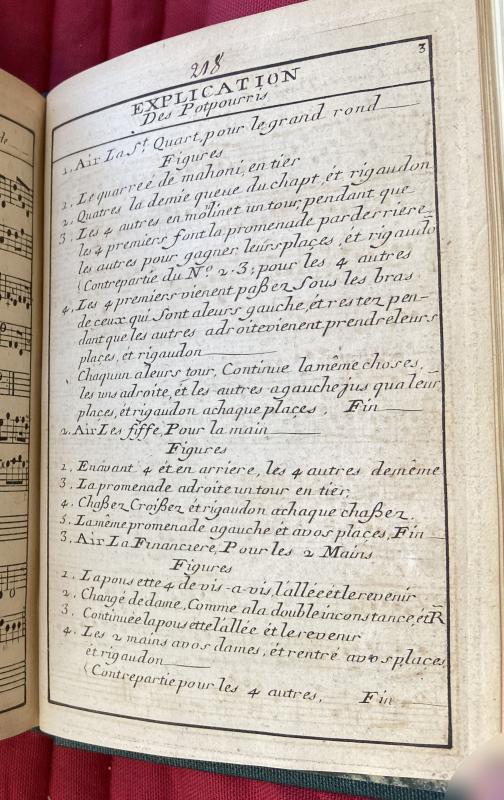 218
3
EXPLICATION
Des Potpourris
1. Air La St. Quart, pour le grand rond
Figures
1. Le quarreé de mahoni, en tier
2. Quatres la demie queue du chapt, ét rigaudon
3. Les 4 autres en molinet un tour, pendant que
les 4 premiers font la promenade par derriere
les autres pour gagner leurs places, ét rigaudō
(Contrepartie du No. 2.3; pour les 4 autres
4. Les 4 premiers vienent paßez sous les bras
de ceux qui sont aleurs gauche, ét restez pen-
dant que les autres adroite vienent prendre leurs
places, ét rigaudon
Chaquun aleurs tour, Continue la même choses,
les uns adroite, ét les autres agauche jus qua leur
places, ét rigaudon achaque places. Fin
2. Air Les fiffe, Pour la main
Figures
1. Enavant 4 ét en arriere, les 4 autres demême
3. La promenade adroite un tour en tier,
4. Chaßez Croißez ét rigaudon achaque chaßez.
5. La même promenade agauche ét avos places, Fin
3. Air La Financiere, Pour les 2 Mains
Figures
1. La pousette 4 de vis-a-vis, l'allée ét le revenir
2. Change de dame, Comme ala double inconstance, ét R̄
3. Continuée la pousette l'allée ét le revenir
4. Les 2 mains avos dames, ét rentré avos places,
ét rigaudon
(Contrepartie pour les 4 autres. Fin